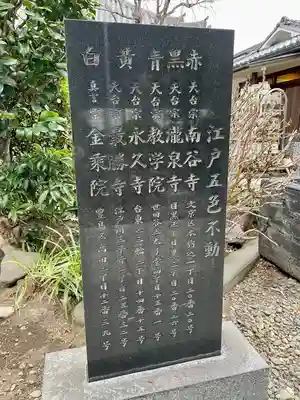 江戸五色不動
赤 天台宗 南谷寺 文京区本駒込一丁目二〇番二〇号
黒 天台宗 瀧泉寺 目黒区下目黒三丁目二〇番二六号
青 天台宗 教学院 世田谷区太子堂四丁目十五番一号
黄 天台宗 永久寺 台東区三ノ輪二丁目十四番十五号
天台宗 最勝寺 江戸川区平井一丁目二五番三二号
白 真言宗 金乗院 豊島区高田二丁目十二番三九号